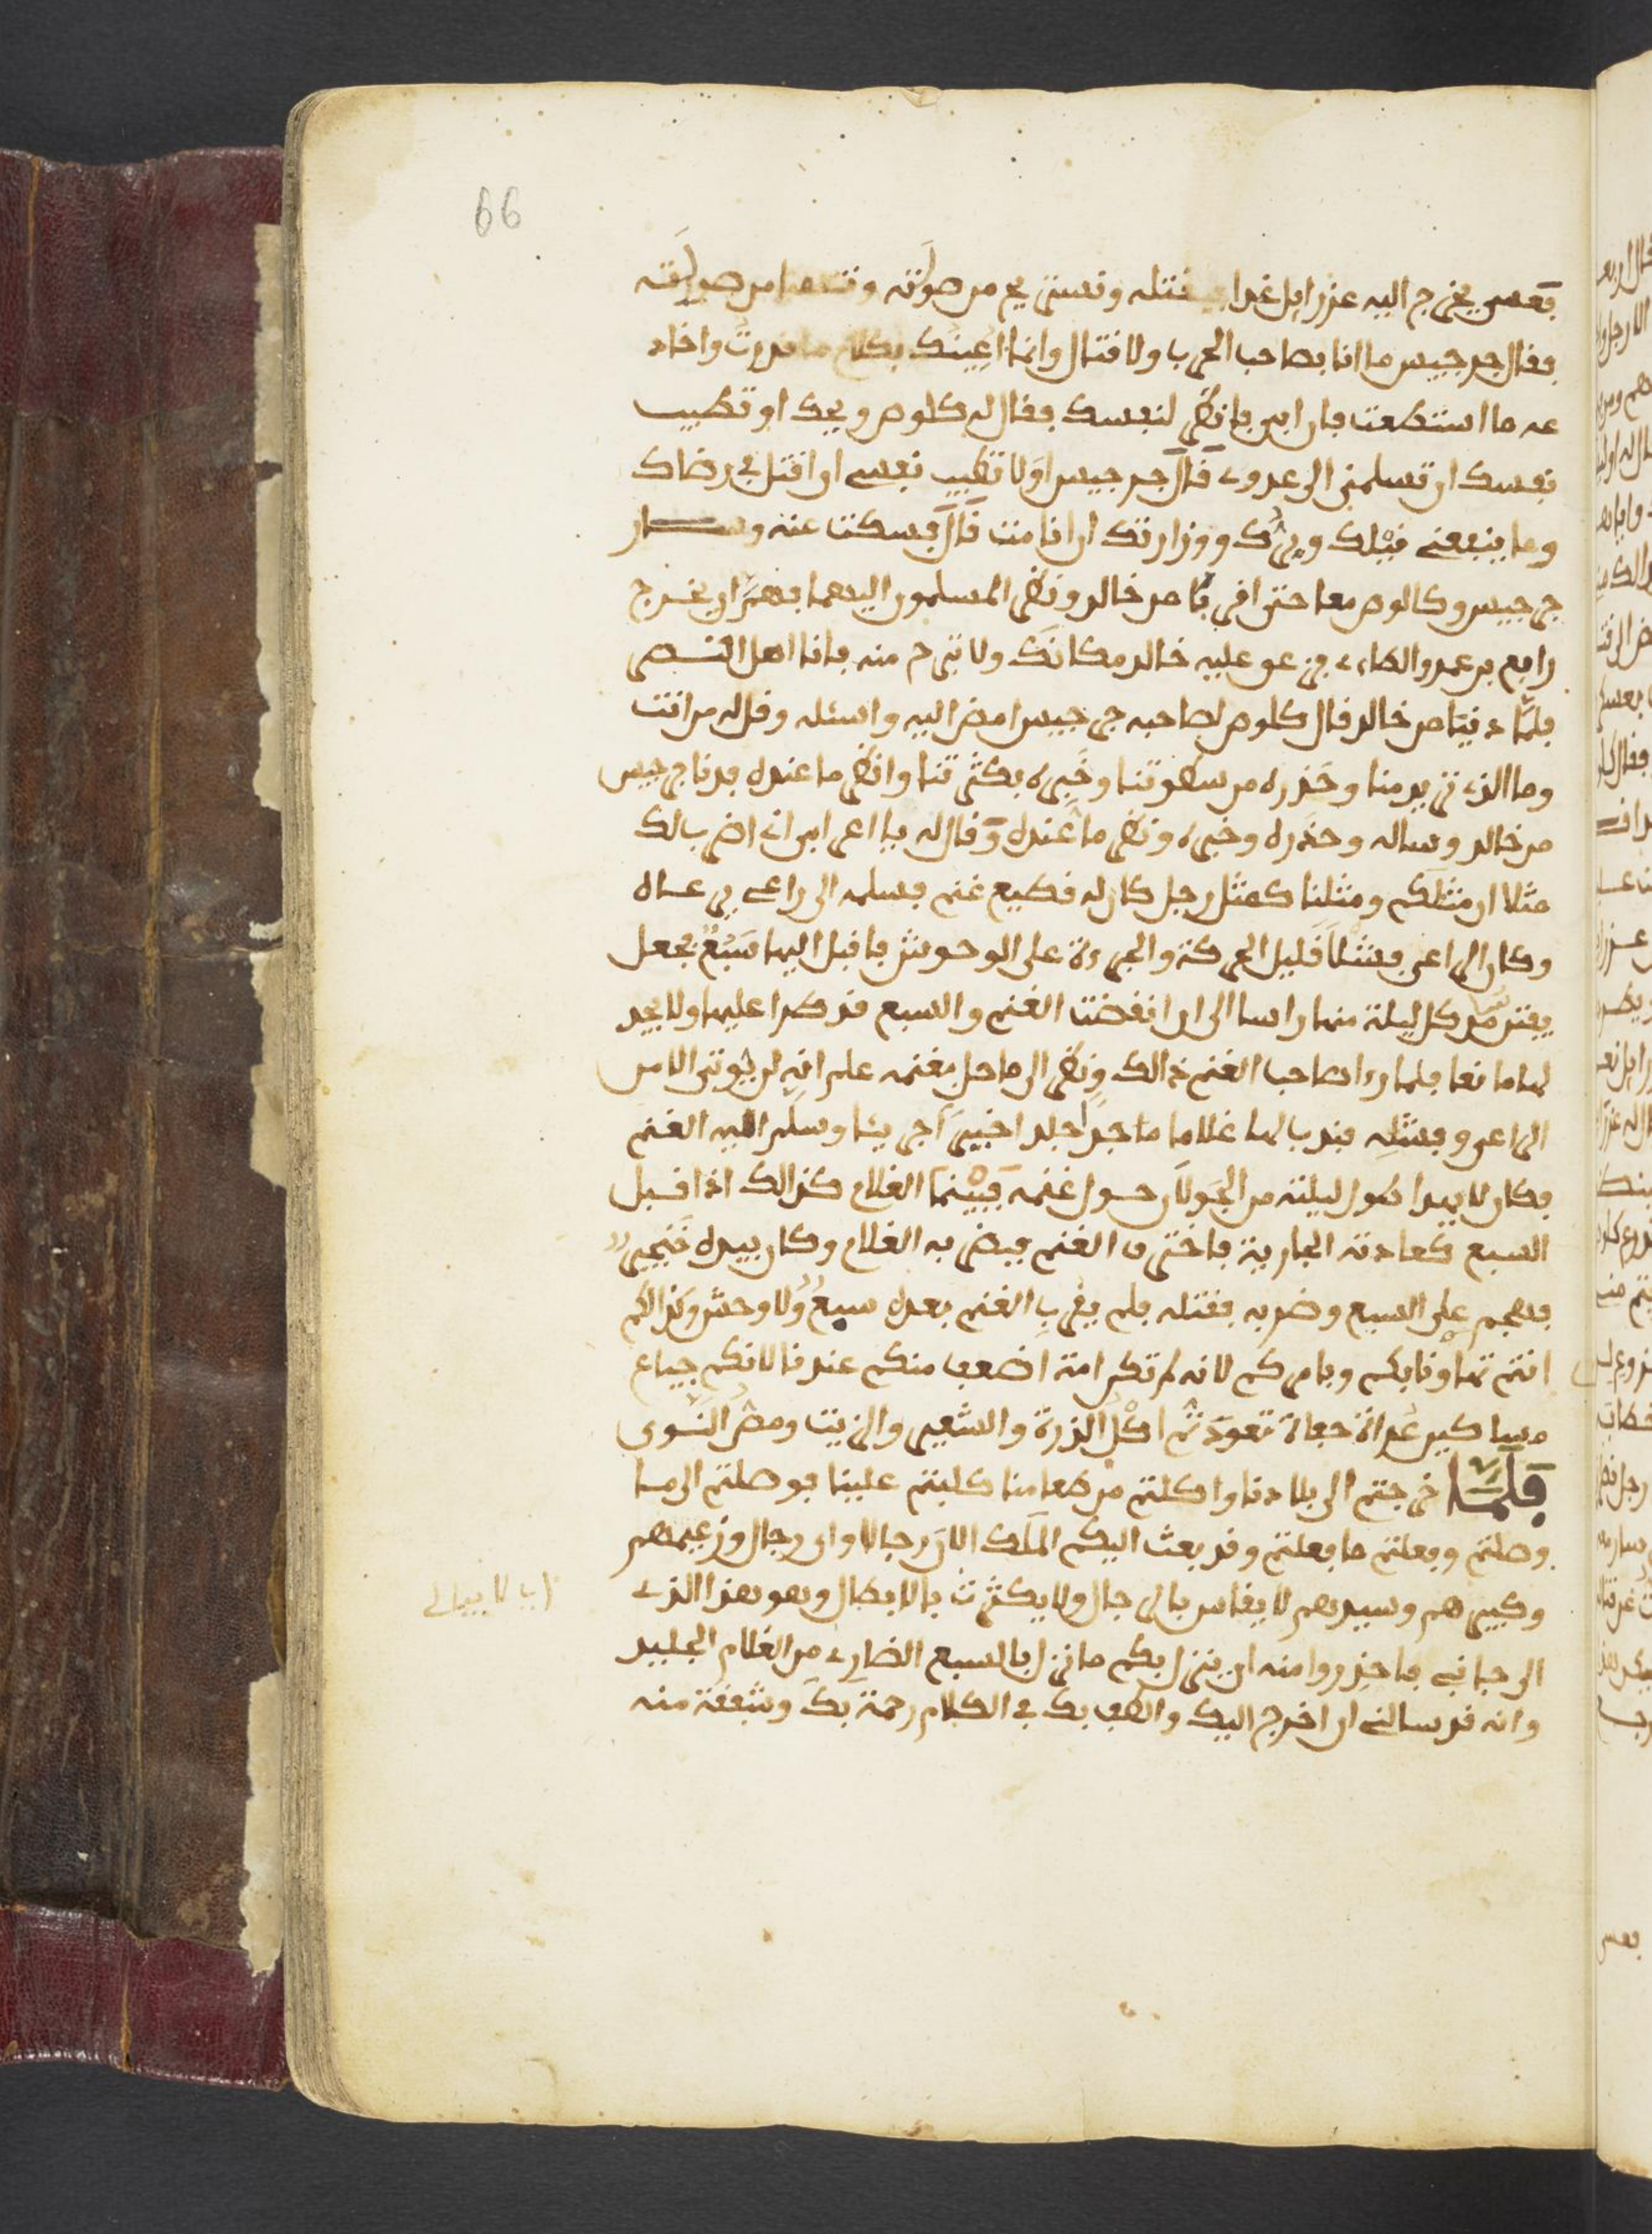 66
فعسى يخرج اليه عزرايل غدا فيقتله ونستريح من صولته
فقال جرجيس ما انا بصاحب الحرب ولا قتال وانما اعينك بكلام ما قدرت واخاد
عه ما استطعت فان ابى فانظر لنفسك فقال له كلوص ويحك او تطيب
نفسك ان تسلمني الى عدوي قال جرجيس اولا تطيب نفسي ان اقتل في رضاك
وما ينفعني قبلك وبرك ووزارتك ان انا مت قال فسكت عنه وسار
جرجيس وكالوص معا حتى اقربا من خالد ونظر المسلمون اليهما فهم ان يخرج
رابع بن عمرو الطاءي فزعق عليه خالد مكانك ولا تبرح منه فانا اهل النصر
فلما دنيا من خالد قال كلوص لصاحبه جرجيس امض اليه واسئله وقل له من انت
وما الذي تريد منا وحذره من سطوتنا وخبره بكثرتنا وانظر ما عنده فدنا جرجيس
من خالد وساله وحذره وخبره ونظر ما عنده وقال له يا اعرابي اني اضرب لك
مثلا ان مثلكم ومثلنا كمثل رجل كان له قطيع غنم فسلمه الى راعي يرعاه
وكان الراعي فشلا قليل الحركة والجرءة على الوحوش فاقبل اليها سبع فجعل
يفترس كل ليلة منها راسا الى ان انقضت الغنم والسبع قد ضرا عليها ولا يجد
لها مانعا فلما رءا صاحب الغنم ذالك ونظر الى ما حل بغنمه علم انه لم يوتى الا من
الراعي وفشله فندب لها غلاما ماجدا جلدا خبيرا جريئا وسلم اليه الغنم
فكان لا يهدا طول ليلته من الجولان حول غنمه فبينما الغلام كذالك اذ اقبل
السبع كعادته الجارية فاخترق الغنم فبصر به الغلام وكان بيده خنجر
فهجم على السبع وضربه فقتله فلم يقرب الغنم بعده سبع ولا وحش وكذالكم
انتم تهاونا بكم وبامركم لانه لم تكن امة اضعف منكم عندنا لانكم جياع
مساكين عراة حفاة تعودتم اكل الذرة والشعير والزيت ومص النوى
فلما خرجتم الى بلادنا واكلتم من طعامنا كلبتم علينا فوصلتم الى ما
وصلتم وفعلتم ما فعلتم وقد بعث اليكم الملك الان رجالا واي رجال وزعيمهم
وكبيرهم وسيدهم لا يقاس بالرجال ولا يكترث بالابطال وهو هذا الذي
اي لا يبالي
الى جانبي فاحذروا منه ان ينزل بكم ما نزل بالسبع الضاري من الغلام الجليد
وانه قد سالني ان اخرج اليك والطف بك في الكلام رحمة بك وشفقة منه